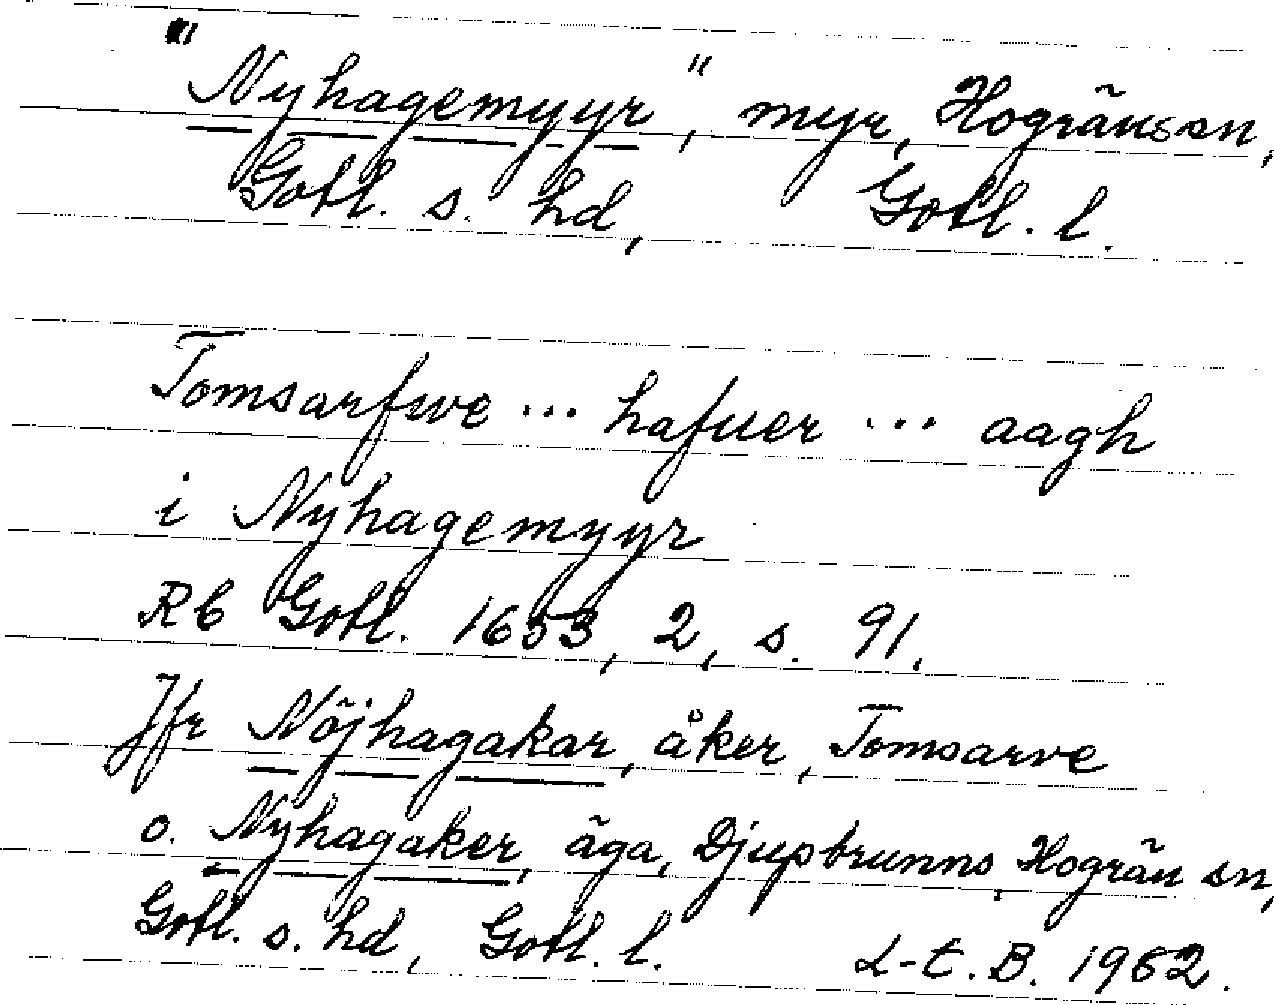 "Nyhagemyyr", myr, Hogräns sn,
Gotl. s. hd, Gotl. l.
Tomsarfwe ... hafuer ... aagh
i Nyhagemyyr
Rb Gotl. 1653, 2, s. 91.
Jfr Nöjhagakar, åker, Tomsarve
o. Nyhagaker, äga, Djupbrunns, Hogrän sn,
Gotl. s. hd, Gotl. l. L-t. B. 1962.